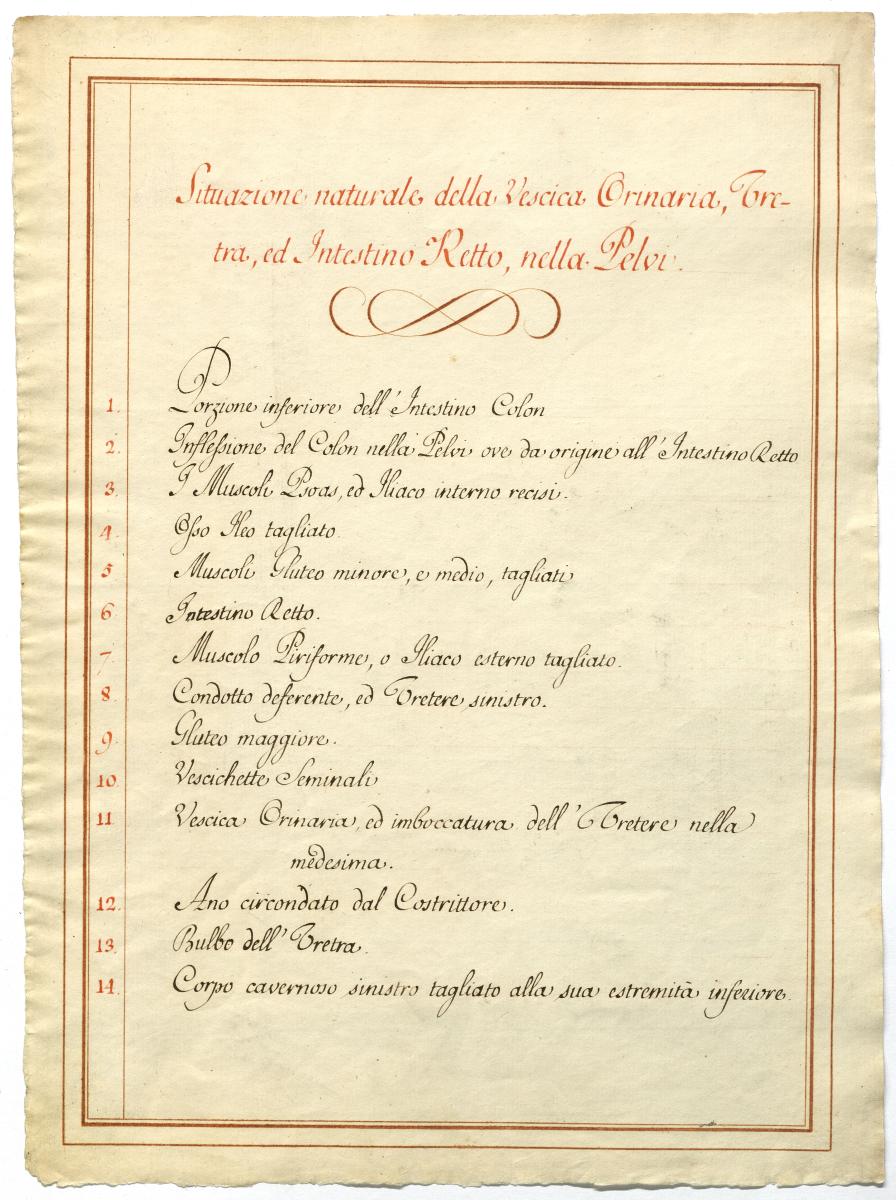 Situazione naturale della Vescica Orinaria, Ure-
tra, ed Intestino Retto, nella Pelvi.
1. Porzione inferiore dell' Intestino Colon
2. Inflessione del Colon nella Pelvi ove da origine all' Intestino Retto
3. I Muscoli Psoas, ed Iliaco interno recisi.
4. Osso Ileo tagliato.
5 Muscoli Gluteo minore, e medio, tagliati
6 Intestino Retto.
7. Muscolo Piriforme, o Iliaco esterno tagliato.
8. Condotto deferente, ed Uretere sinistro.
9. Gluteo maggiore.
10. Vescichette Seminali
11. Vescica Orinaria, ed imboccatura dell' Uretere nella
medesima.
12. Ano circondato dal Costrittore.
13. Bulbo dell' Uretra.
14. Corpo cavernoso sinistro tagliato alla sua estremità inferiore.